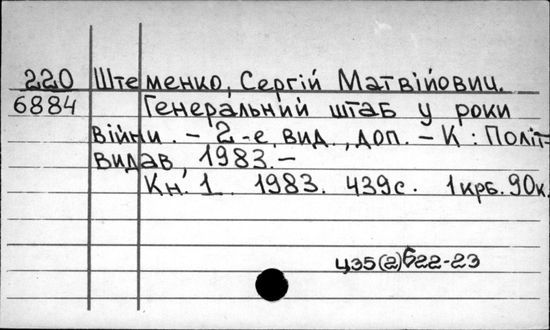 220 Штеменко, Сергій Матвійович.
6884 Генеральний штаб у роки
війни. – 2-е вид., доп. – К : Політ-
видав, 1983. –
Кн. 1 1983. 439с. 1крб. 90к.
ЦЗ5(2)622-23